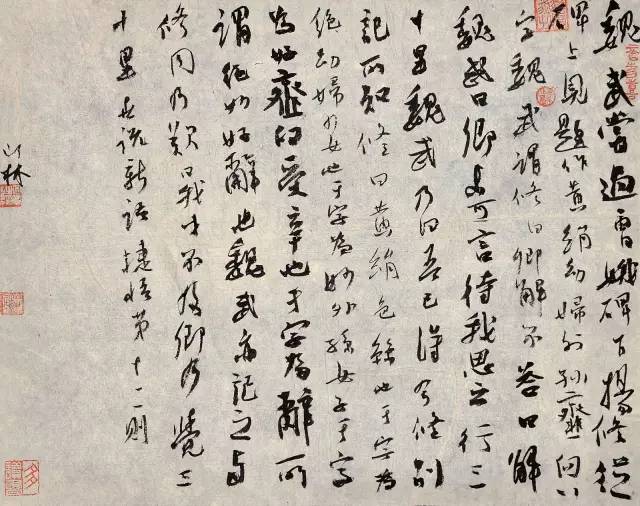 魏武嘗過曹娥碑下楊修從
碑上見題作黃絹幼婦外孫虀臼八
字魏武謂修曰卿解不答曰解
魏武曰卿未可言待我思之行三
十里魏武乃曰吾已得令修別
記所知修曰黃絹色絲也于字為
絕幼婦少女也于字為妙外孫女子于字
為好虀臼受辛也于字為辭所
謂絕妙好辭也魏武亦記之與
修同乃歎曰我才不及卿乃覺三
十里 世說新語捷悟第十二則